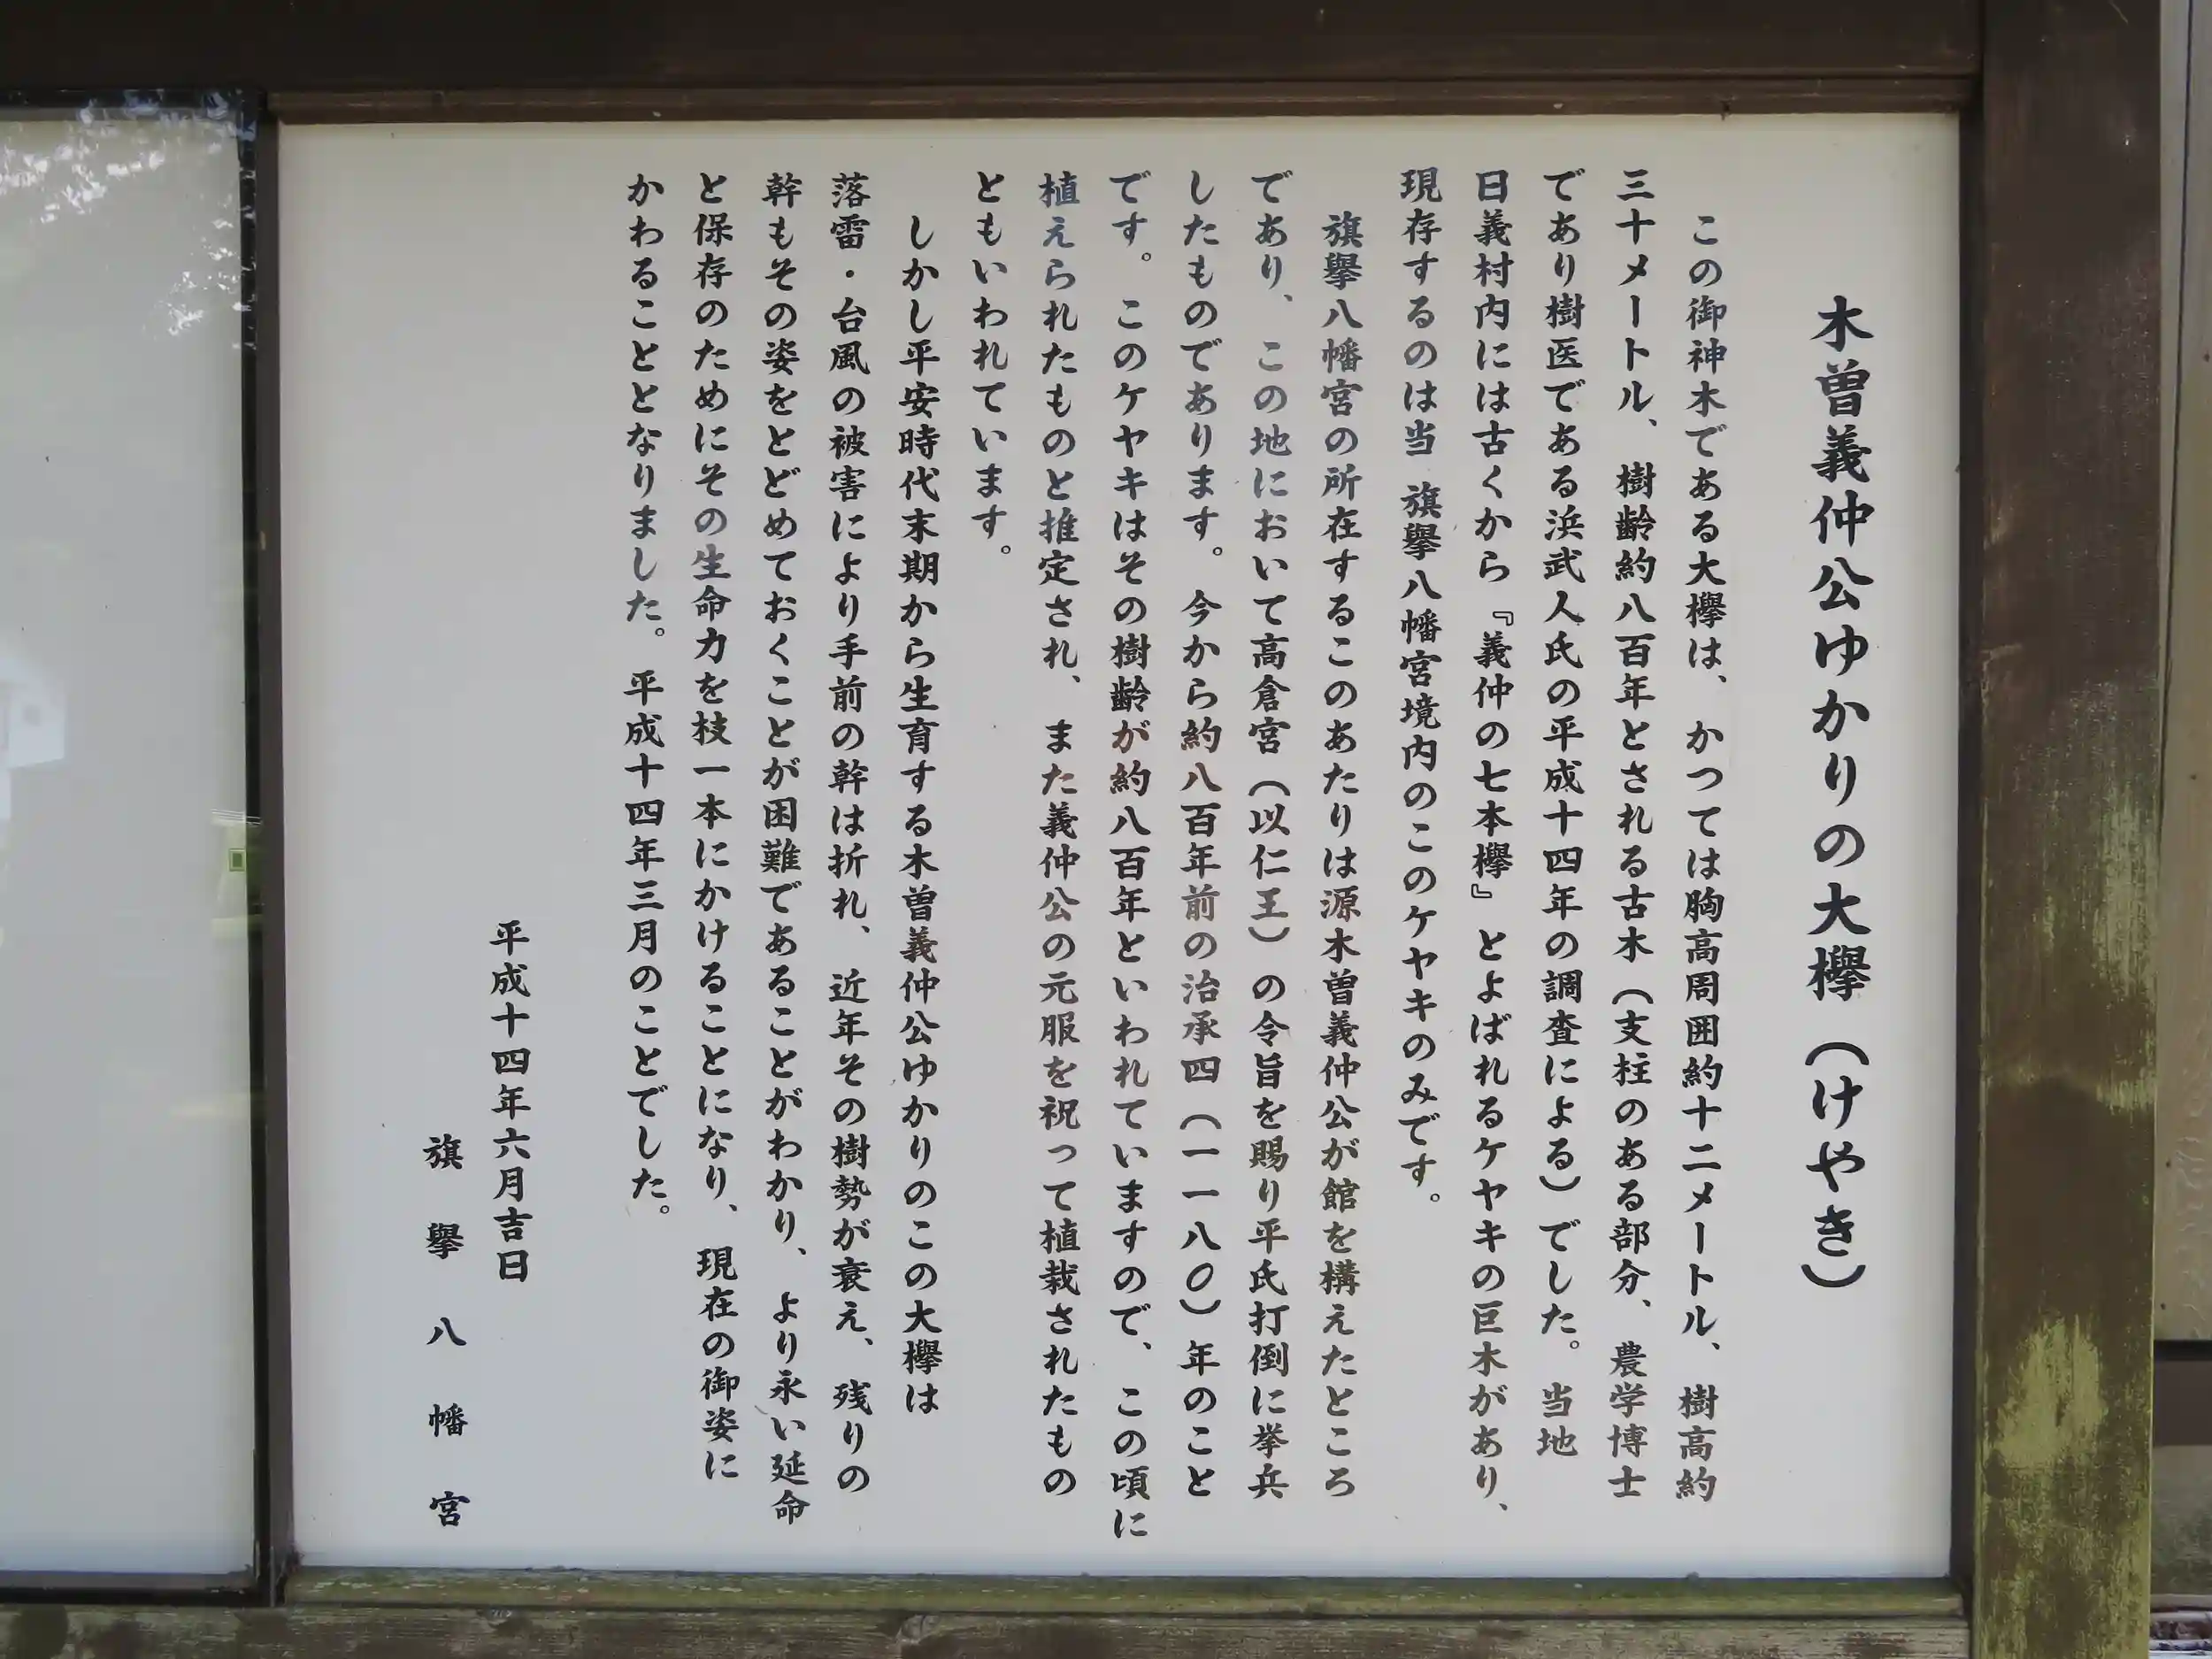 木曽義仲公ゆかりの大欅（けやき）
この御神木である大欅は、かつては胸高周囲約十二メートル、樹高約
三十メートル、樹齢約八百年とされる古木（支柱のある部分、農学博士
であり樹医である浜武人氏の平成十四年の調査による）でした。当地
日義村内には古くから『義仲の七本欅』とよばれるケヤキの巨木があり、
現存するのは当 旗擧八幡宮境内のこのケヤキのみです。
旗擧八幡宮の所在するこのあたりは源木曽義仲公が館を構えたところ
であり、この地において高倉宮（以仁王）の令旨を賜り平氏打倒に挙兵
したものであります。今から約八百年前の治承四（一一八〇）年のこと
です。このケヤキはその樹齢が約八百年といわれていますので、この頃に
植えられたものと推定され、また義仲公の元服を祝って植栽されたもの
ともいわれています。
しかし平安時代末期から生育する木曽義仲公ゆかりのこの大欅は
落雷・台風の被害により手前の幹は折れ、近年その樹勢が衰え、残りの
幹もその姿をとどめておくことが困難であることがわかり、より永い延命
と保存のためにその生命力を枝一本にかけることになり、現在の御姿に
かわることとなりました。平成十四年三月のことでした。
平成十四年六月吉日
旗擧八幡宮